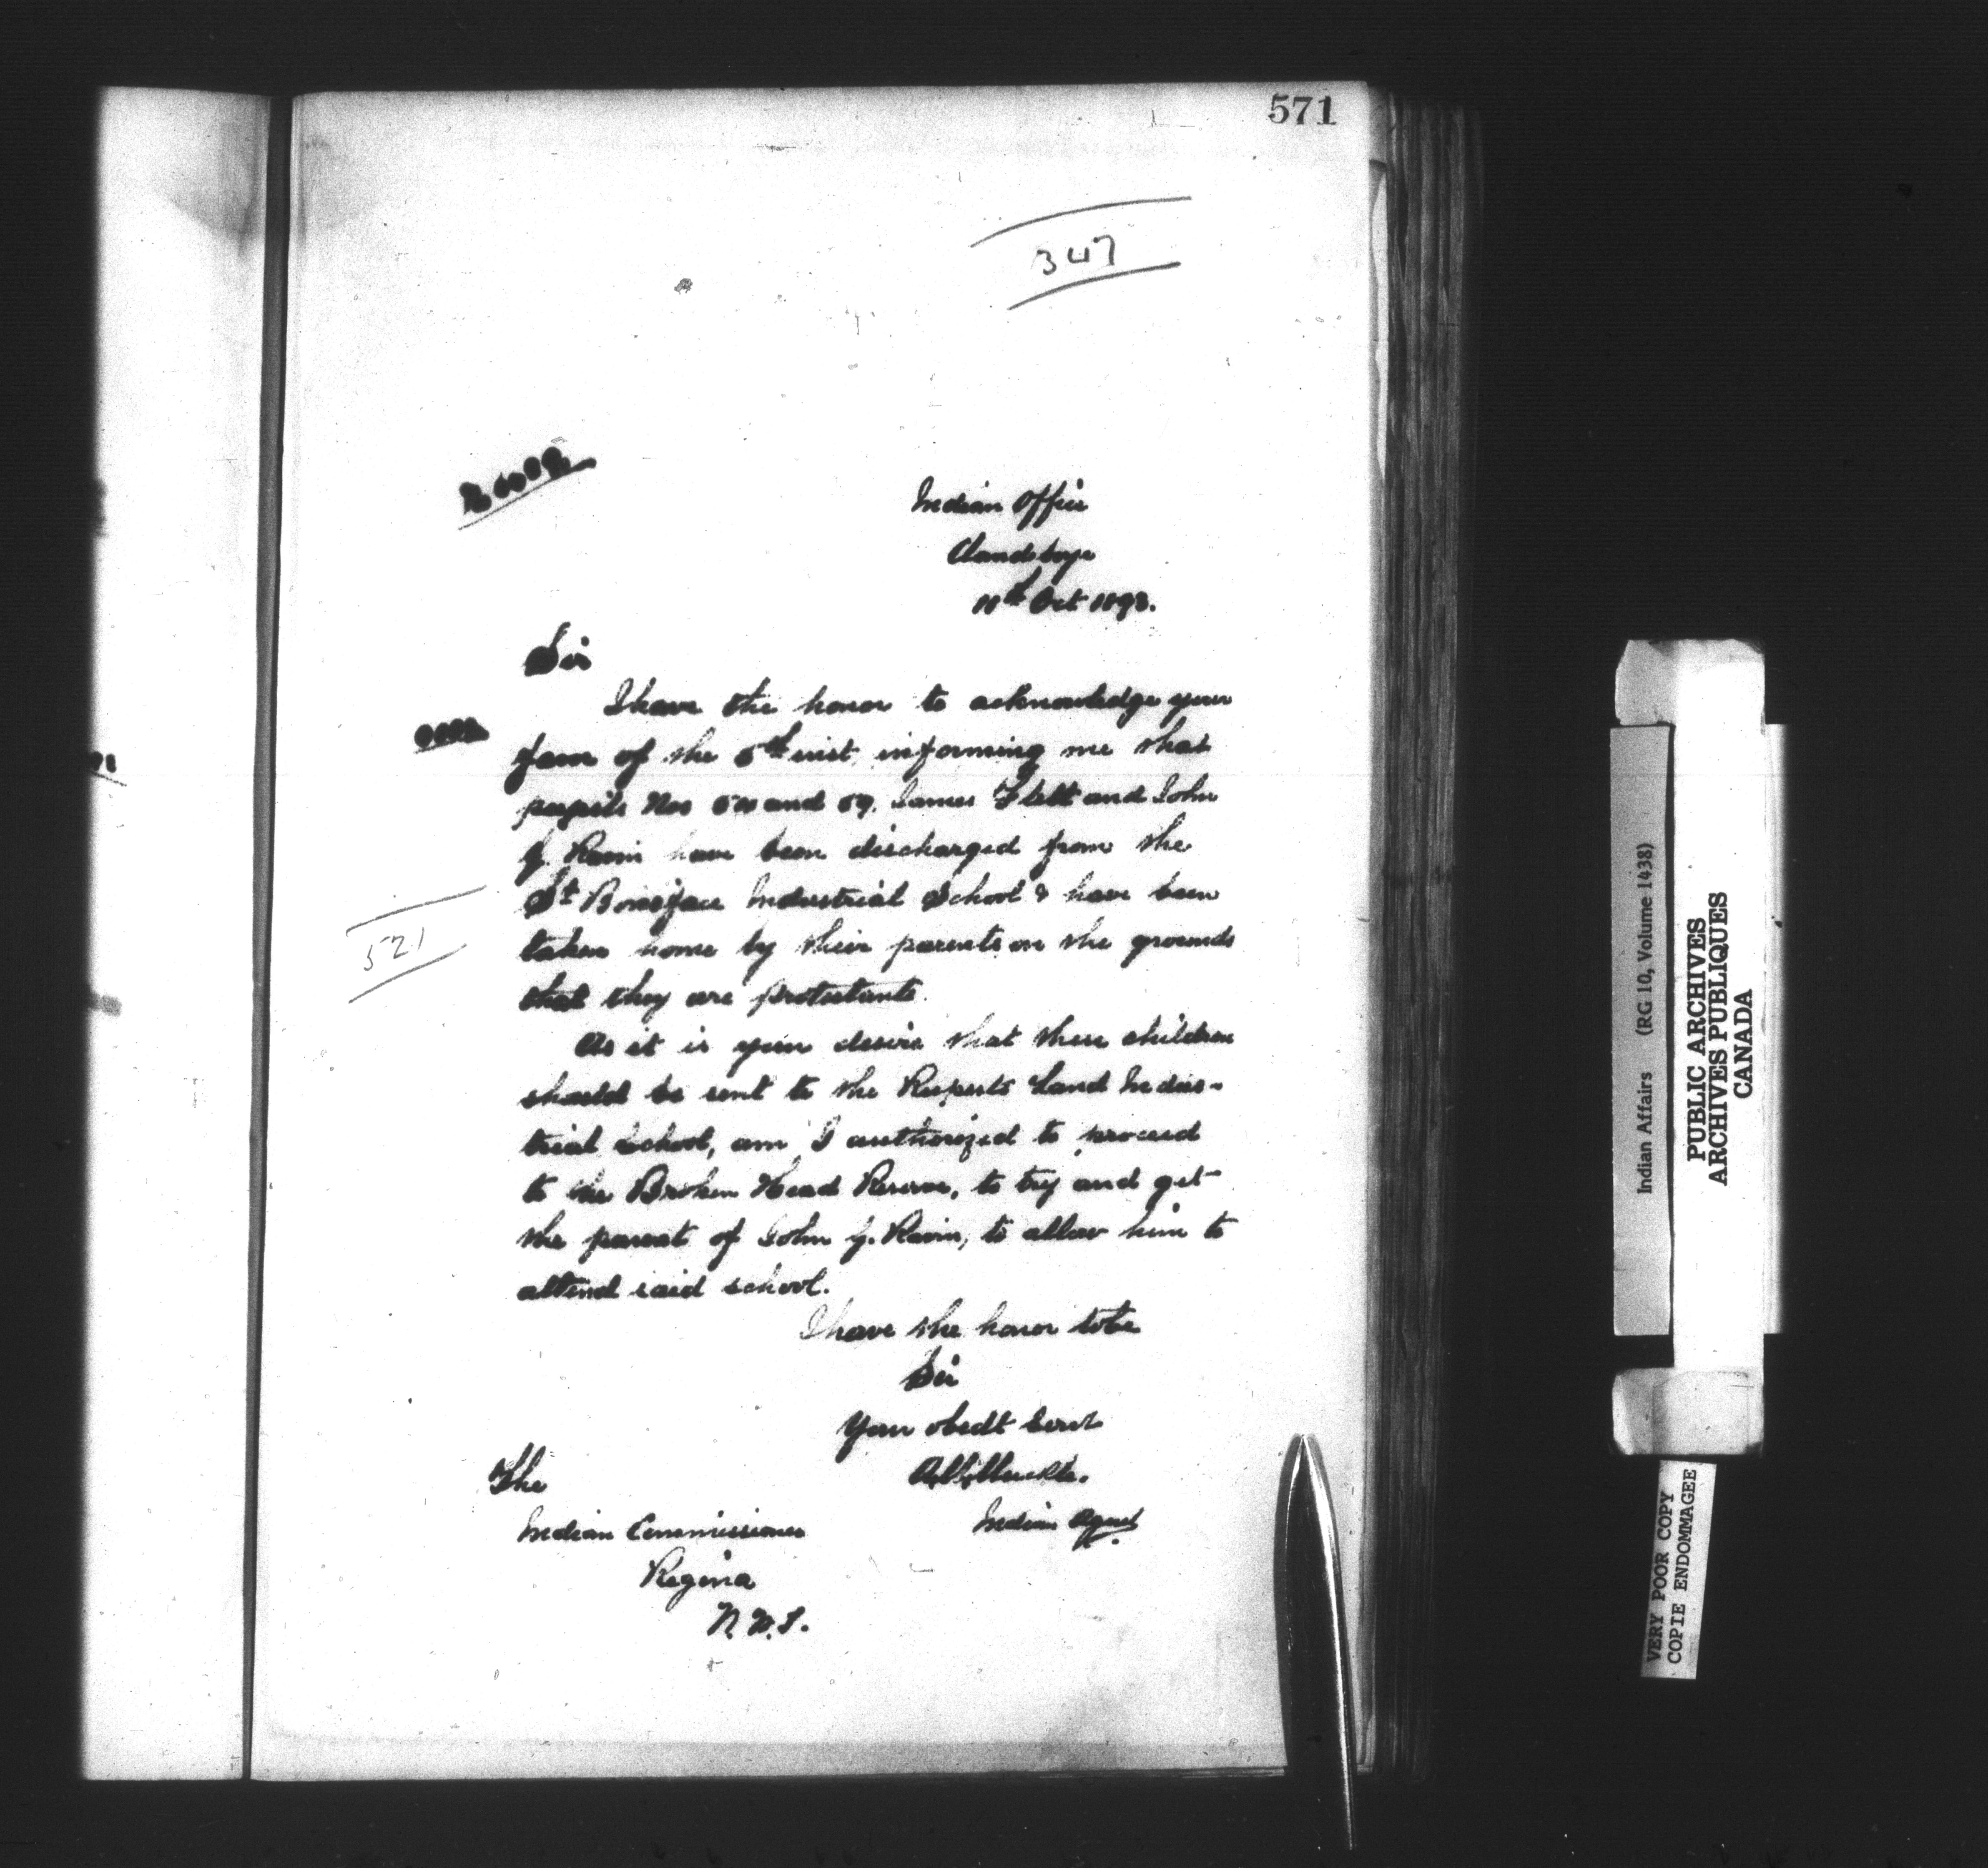 571
347
Indian Office
Clandeboye
11th Oct 1893.
Sir
I have the honor to acknowledge your
favor of the 5th inst informing me that
pupils Nos and 59. James Flett and John
G. Ravin have been discharged from the
St Boniface Industrial School & have been
taken home by their parents on the grounds
that they are protestants.
521
As it is your desire that these children
should be sent to the Ruperts Land Indus-
trial School, am I authorized to proceed
to the Broken Head Reserve, to try and get
the parent of John G. Ravin, to allow him to
attend said school.
I have the honor to be
Sir
Your obedt Servt
Indian Agent
The
Indian Commissioner
Regina
N.W.T.
Indian Affairs (RG 10, Volume 1438)
PUBLIC ARCHIVES
ARCHIVES PUBLIQUES
CANADA
VERY POOR COPY
COPIE ENDOMMAGEE